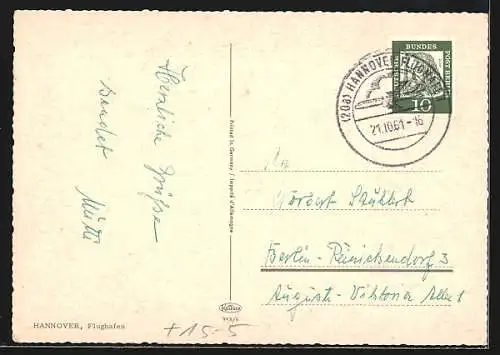 Herzliche Grüße
sendet
Mutti
Printed in Germany / Importé d'Allemagne
(20a) HANNOVER FLUGHAFEN
21.10.61-16
BUNDES
POST BERLIN
10
An
Berlin-Reinickendorf 3
Auguste-Viktoria Allee 1
HANNOVER, Flughafen
+15-5